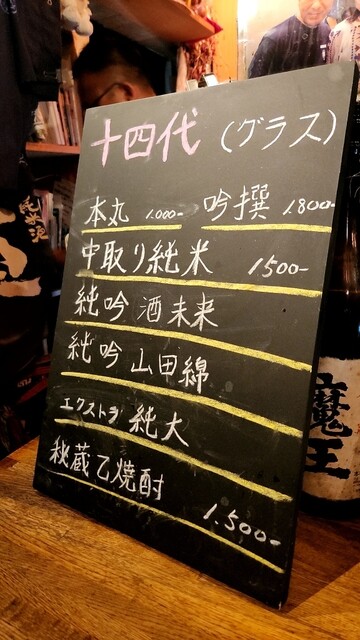 十四代 (グラス)
本丸 1.000- 吟撰 1.800-
中取り純米 1500-
純吟 酒未来
純吟 山田綿
エクストラ 純大
秘蔵乙焼酎 1.500-
魔王